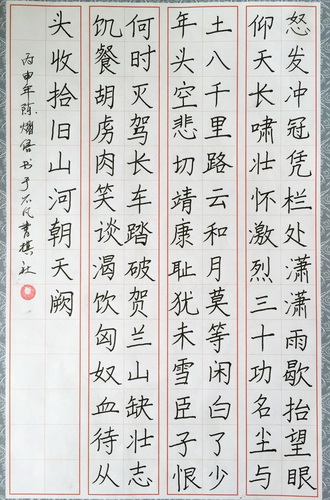 怒发冲冠凭栏处潇潇雨歇抬望眼
仰天长啸壮怀激烈三十功名尘与
土八千里路云和月莫等闲白了少
年头空悲切靖康耻犹未雪臣子恨
何时灭驾长车踏破贺兰山缺壮志
饥餐胡虏肉笑谈渴饮匈奴血待从
头收拾旧山河朝天阙
丙申年陈书于